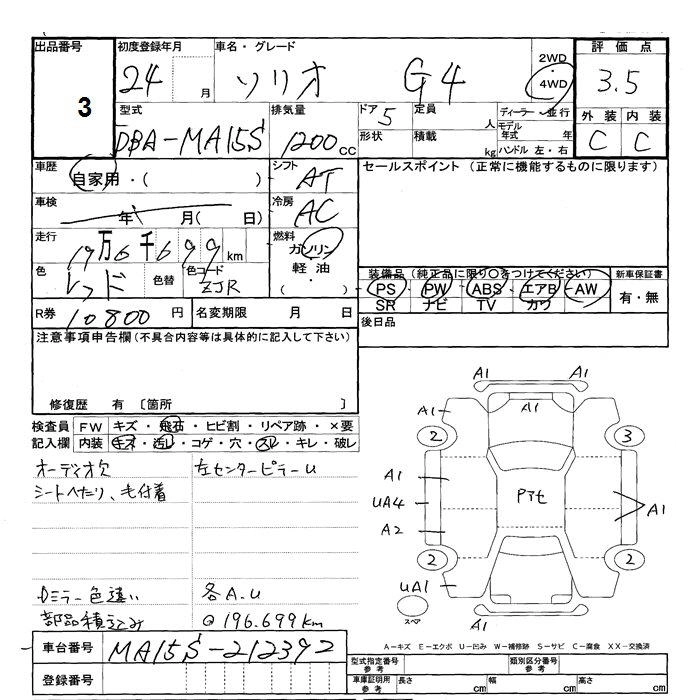 出品番号
3
初度登録年月
24 月
車名・グレード
ソリオ G4
2WD
4WD
評価点
3.5
外装 内装
C C
型式
DBA-MA15S
排気量
1200cc
ドア 5
形状
定員 人
積載 kg
ディーラー・並行
モデル年式 年
ハンドル 左・右
車歴
自家用・( )
車検
年 月( 日)
走行
19万6千699km
色
レッド
色替
色コード
ZJR
シフト
AT
冷房
AC
燃料
ガソリン
軽油
( )
セールスポイント(正常に機能するものに限ります)
装備品(純正品に限り○をつけてください)
PS PW ABS エアB AW
SR ナビ TV カワ
新車保証書
有・無
R券
10800円
名変期限 月 日
後日品
注意事項申告欄(不具合内容等は具体的に記入して下さい)
修復歴 有 〔箇所 〕
検査員記入欄
FW キズ・飛石・ヒビ割・リペア跡・×要
内装 キズ・汚レ・コゲ・穴・スレ・キレ・破レ
オーディオ欠
左センターピラーU
シートヘたり、毛付着
Dミラー色違い
各A.U
部品積込み
@196.699km
車台番号
MA15S-212392
登録番号
A1 A1
A1 A1
2 3
A1
UA4
A2
Pアセ
A1
2 2
UA1
スペア
A1
A-キズ E-エクボ U-凹み W-補修跡 S-サビ C-腐食 XX-交換済
型式指定番号 参考
類別区分番号 参考
車庫証明用 参考
長さ cm
幅 cm
高さ cm